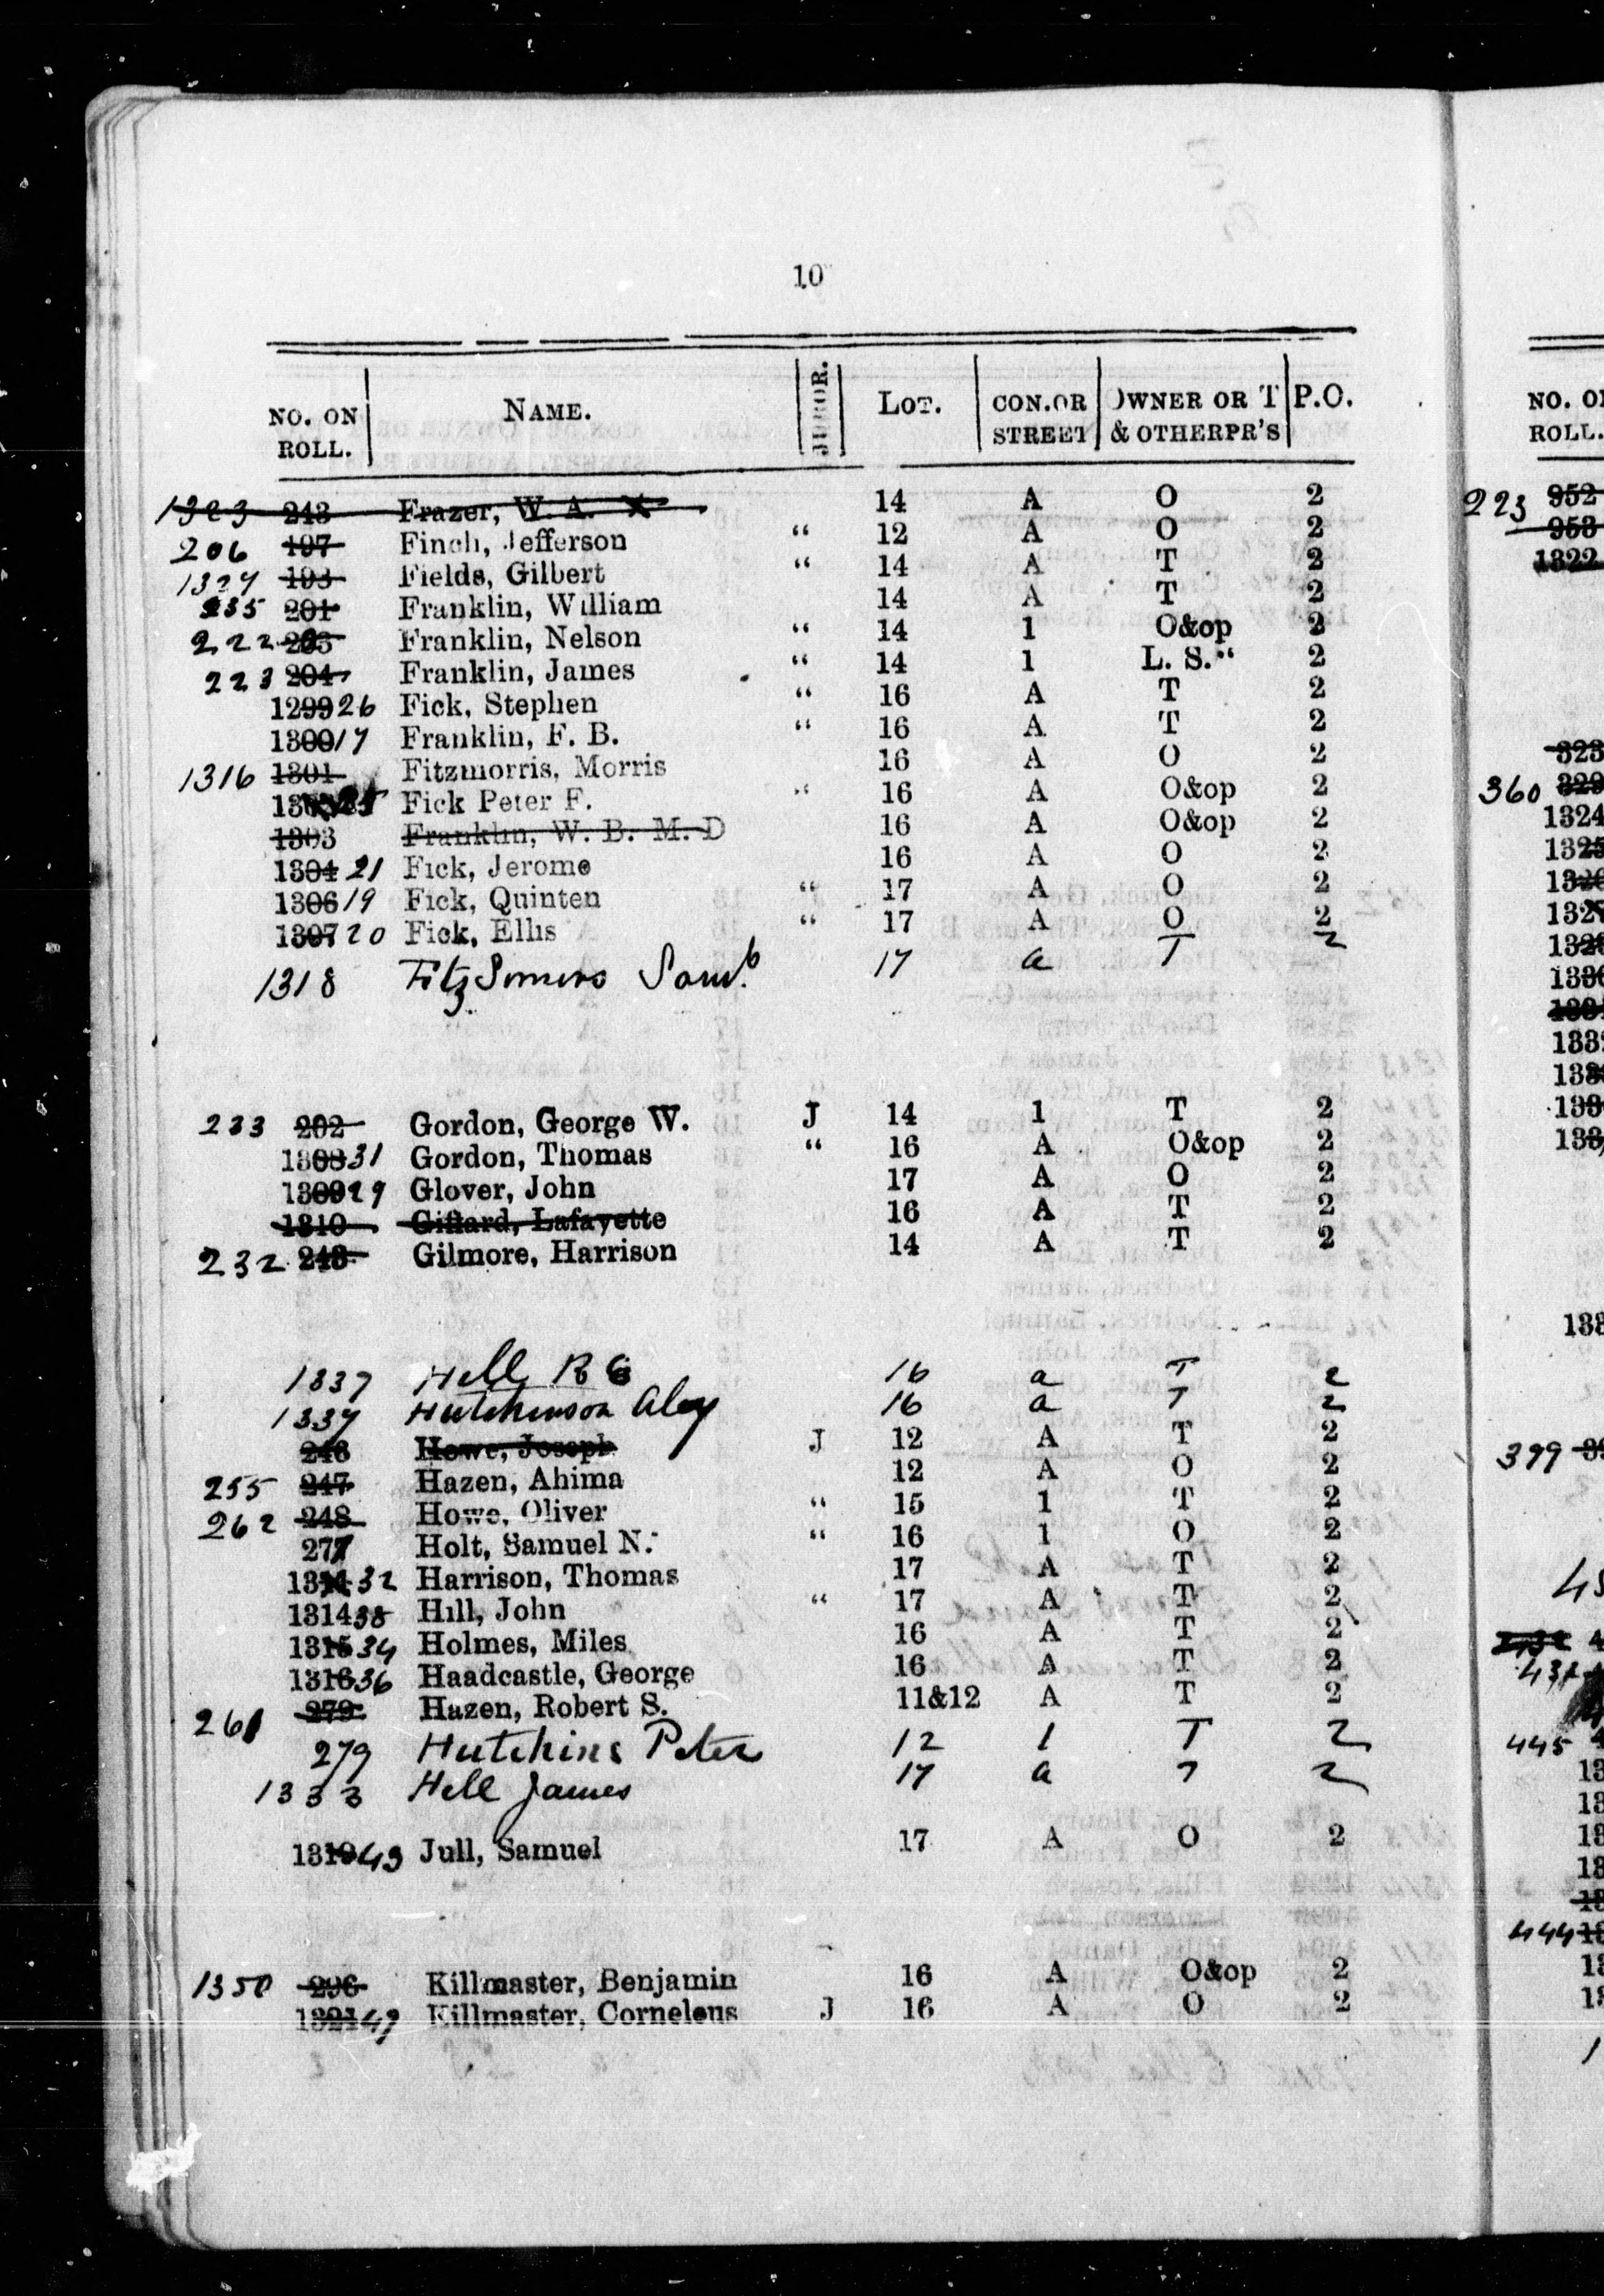 10
NO. ON ROLL. NAME. JUROR. LOT. CON.OR STREET OWNER OR T & OTHERPR'S P.O.
1323 243 Frazer, W. A. X 14 A O 2
206 197 Finch, Jefferson “ 12 A O 2
1327 193 Fields, Gilbert “ 14 A T 2
235 201 Franklin, William 14 A T 2
222 203 Franklin, Nelson “ 14 1 O&op 2
223 204 Franklin, James “ 14 1 L. S. “ 2
1299 26 Fick, Stephen “ 16 A T 2
1300 17 Franklin, F. B. “ 16 A T 2
1316 1301 Fitzmorris, Morris 16 A O 2
25 Fick Peter F. “ 16 A O&op 2
1303 Franklin, W. B. M. D 16 A O&op 2
1304 21 Fick, Jerome 16 A O 2
1306 19 Fick, Quinten “ 17 A O 2
1307 20 Fick, Ellis “ 17 A O 2
1318 Fitz Simons Saml 17 a T 2
233 202 Gordon, George W. J 14 1 T 2
1308 31 Gordon, Thomas “ 16 A O&op 2
1309 29 Glover, John 17 A O 2
1310 Giffard, Lafayette 16 A T 2
232 248 Gilmore, Harrison 14 A T 2
1337 Hell R 16 a T 2
1337 Hutchinson Alex 16 a T 2
246 Howe, Joseph J 12 A T 2
255 247 Hazen, Ahima 12 A O 2
262 248 Howe, Oliver “ 15 1 T 2
277 Holt, Samuel N. “ 16 1 O 2
32 Harrison, Thomas 17 A T 2
1314 38 Hill, John “ 17 A T 2
1315 34 Holmes, Miles 16 A T 2
1316 36 Haadcastle, George 16 A T 2
261 279 Hazen, Robert S. 11&12 A T 2
279 Hutchins Peter 12 1 T 2
1333 Hell James 17 a T 2
1319 43 Jull, Samuel 17 A O 2
1350 296 Killmaster, Benjamin 16 A O&op 2
1321 49 Killmaster, Cornelens J 16 A O 2
NO. O
ROLL.
223 952
953
1322
323
360 329
1324
1325
132
132
132
133
133
133
133
133
399
445
444